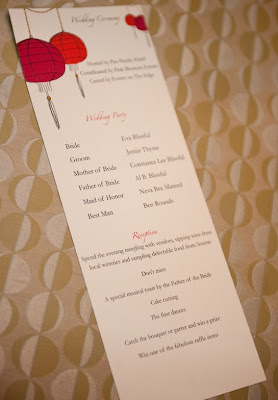 Wedding Ceremony
Hosted by Pan Pacific Hotel
Coordinated by Pink Blossom Events
Catered by Events on The Edge
Wedding Party
Bride Eva Blissful
Groom Justin Thyme
Mother of Bride Constance Lee Blissful
Father of Bride Al B. Blissful
Maid of Honor Neva Ben Mareed
Best Man Ben Rounds
Reception
Spend the evening mingling with vendors, sipping wine from
local wineries and sampling delectable food from
Don't miss:
A special musical toast by the Father of the Bride
Cake cutting
The first dances
Catch the bouquet or garter and win a prize
Win one of the fabulous raffle items